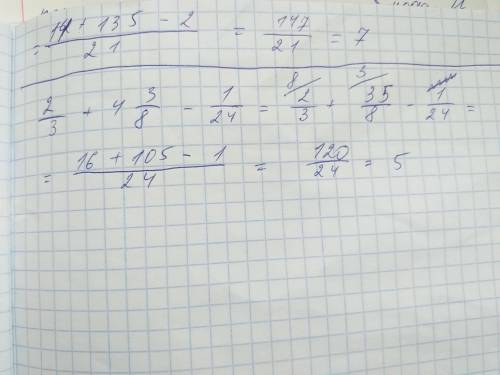 = (14 + 135 - 2)/21 = 147/21 = 7
2/3 + 4 3/8 - 1/24 = 8/ 2/3 + 3/ 35/8 - 1/24 =
= (16 + 105 - 1)/24 = 120/24 = 5